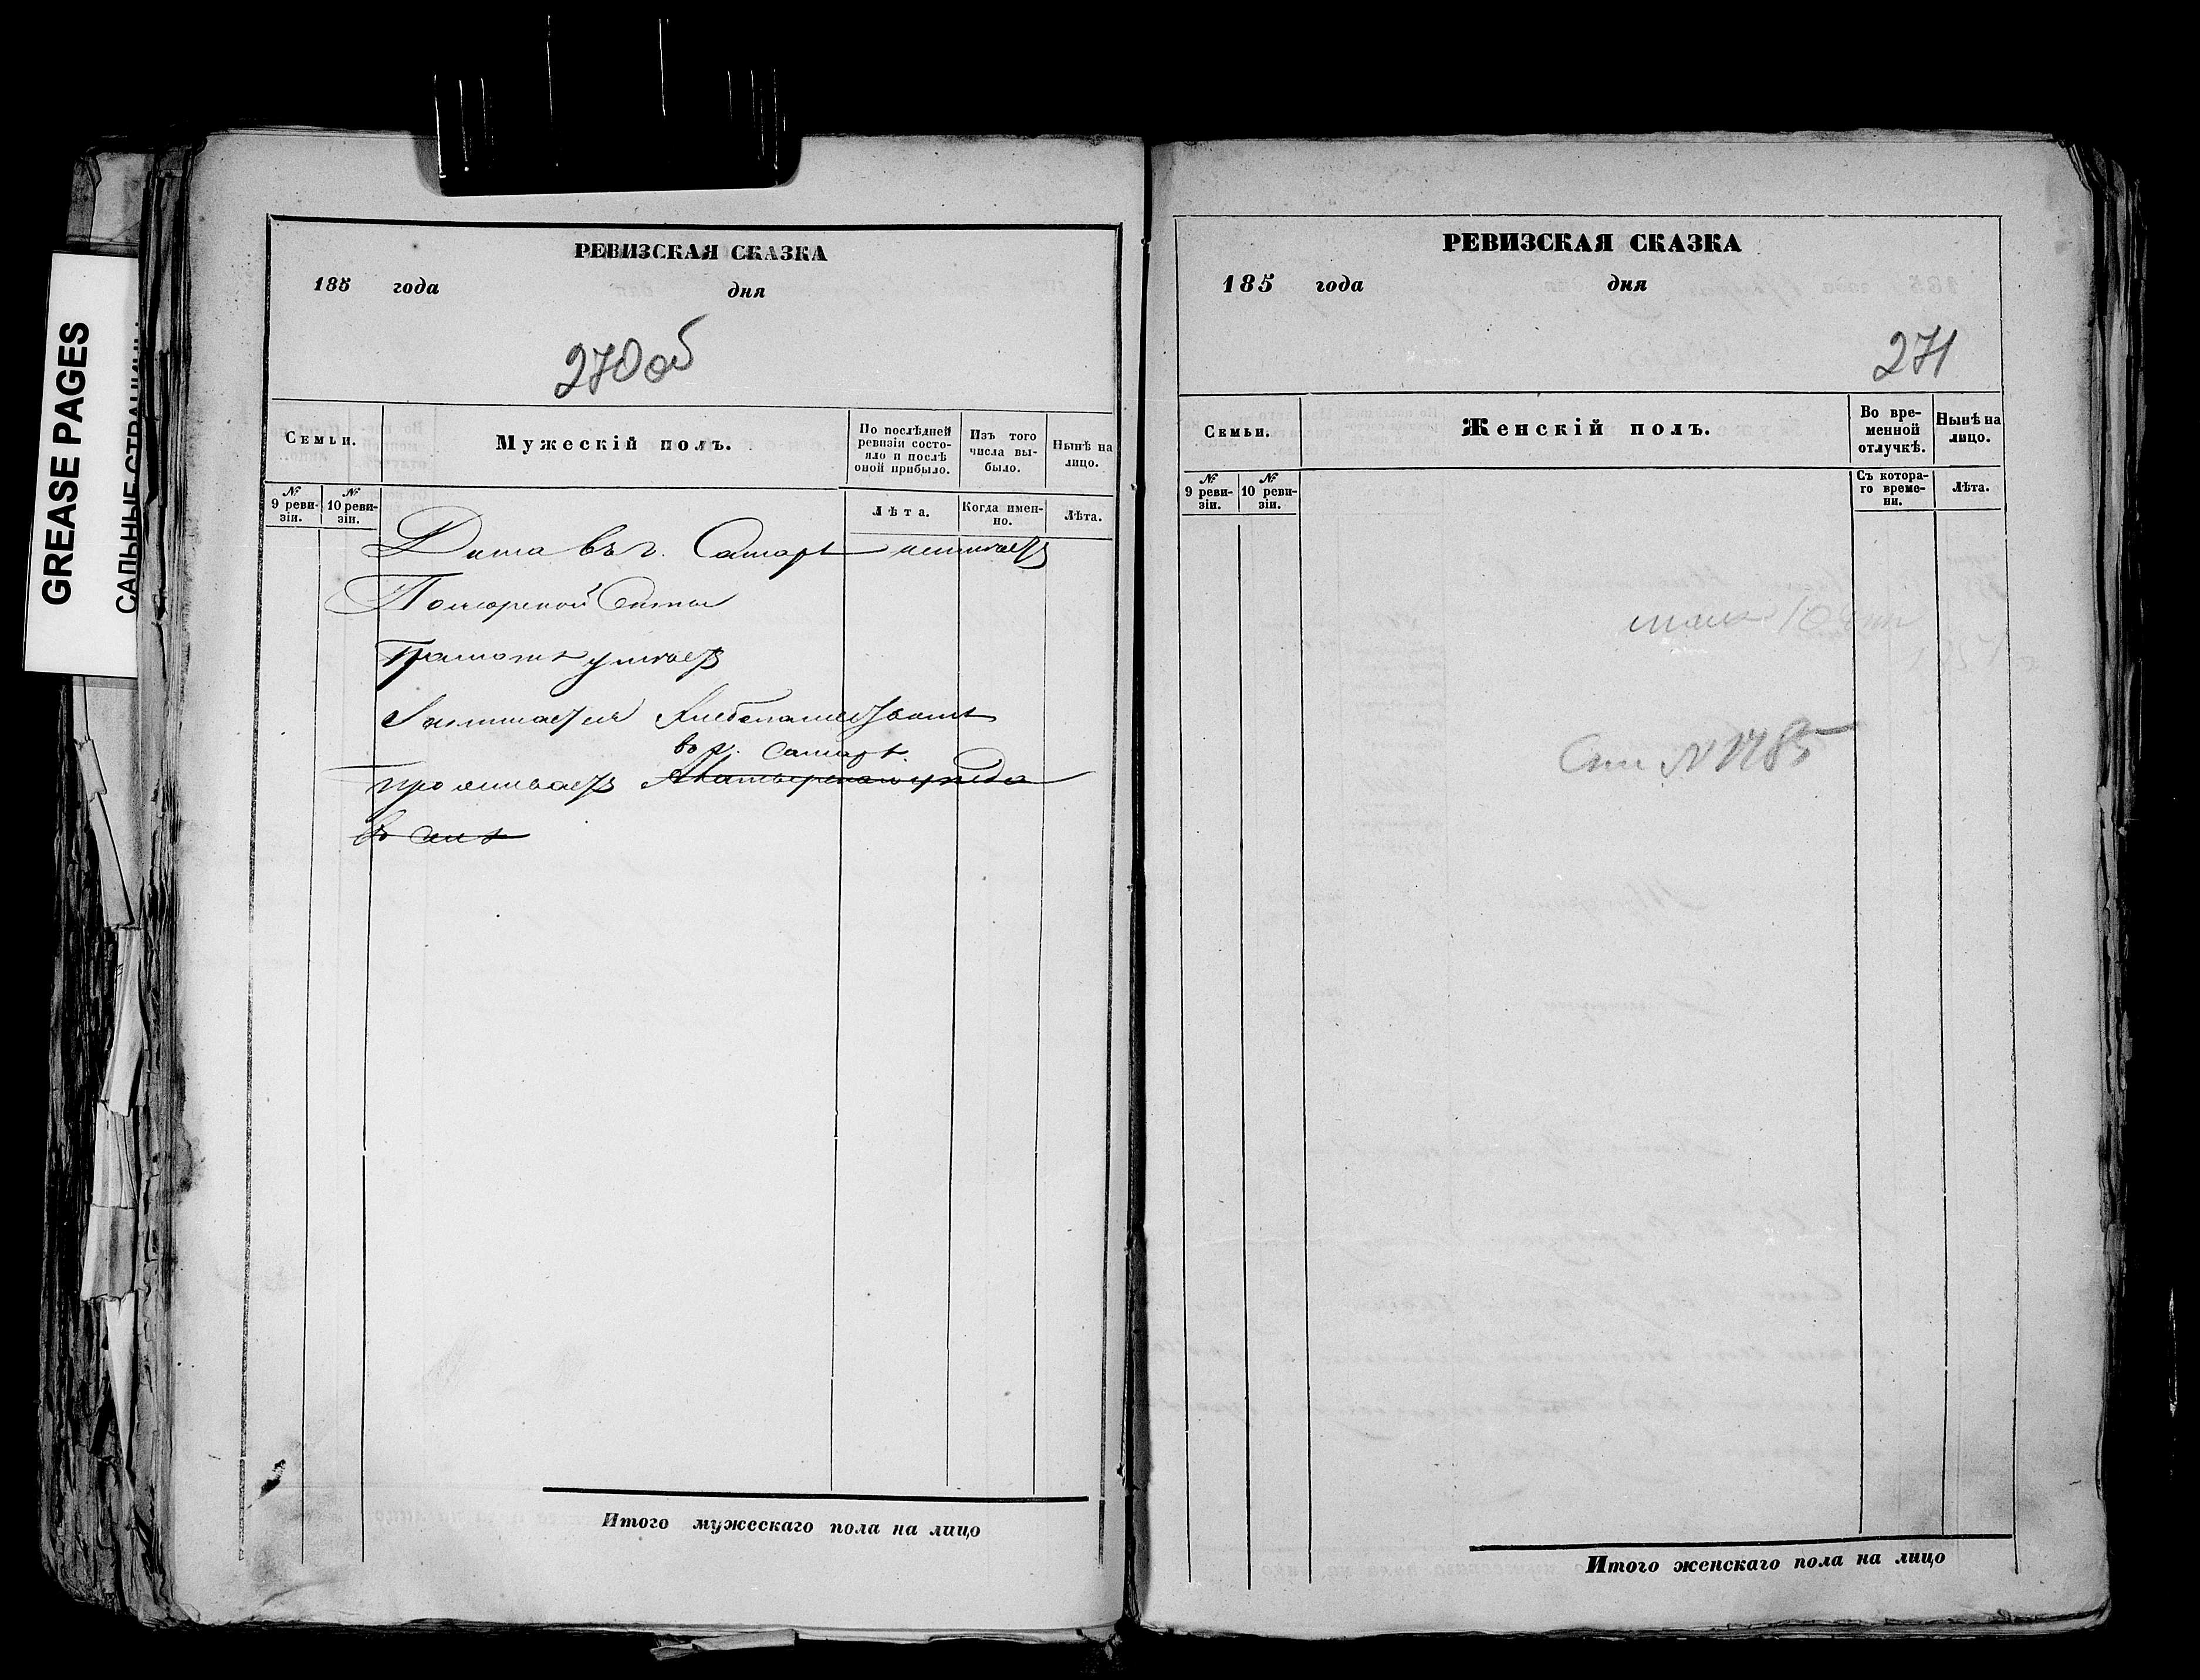 GREASE PAGES
САЛЬНЫЕ СТРАНИЦЫ
РЕВИЗСКАЯ СКАЗКА
185 года дня
270 об
Семьи.
Мужескій полъ.
По послѣдней ревизіи состояло и послѣ оной прибыло.
Изъ того числа выбыло.
Нынѣ на лицо.
№ 9 ревизіи.
№ 10 ревизіи.
Лѣта.
Когда именно.
Лѣта.
Дома въ г. Самарѣ неимѣетъ
Поморской Секты
Грамотѣ умѣетъ
Занимается Хлебопашествомъ
въ г. Самарѣ.
проживаетъ уѣзда
въ селѣ
Итого мужескаго пола на лицо
РЕВИЗСКАЯ СКАЗКА
185 года дня
271
Семьи.
Женскій полъ.
Во временной отлучкѣ.
Нынѣ на лицо.
№ 9 ревизіи.
№ 10 ревизіи.
Съ котораго времени.
Лѣта.
N 1785
Итого женскаго пола на лицо